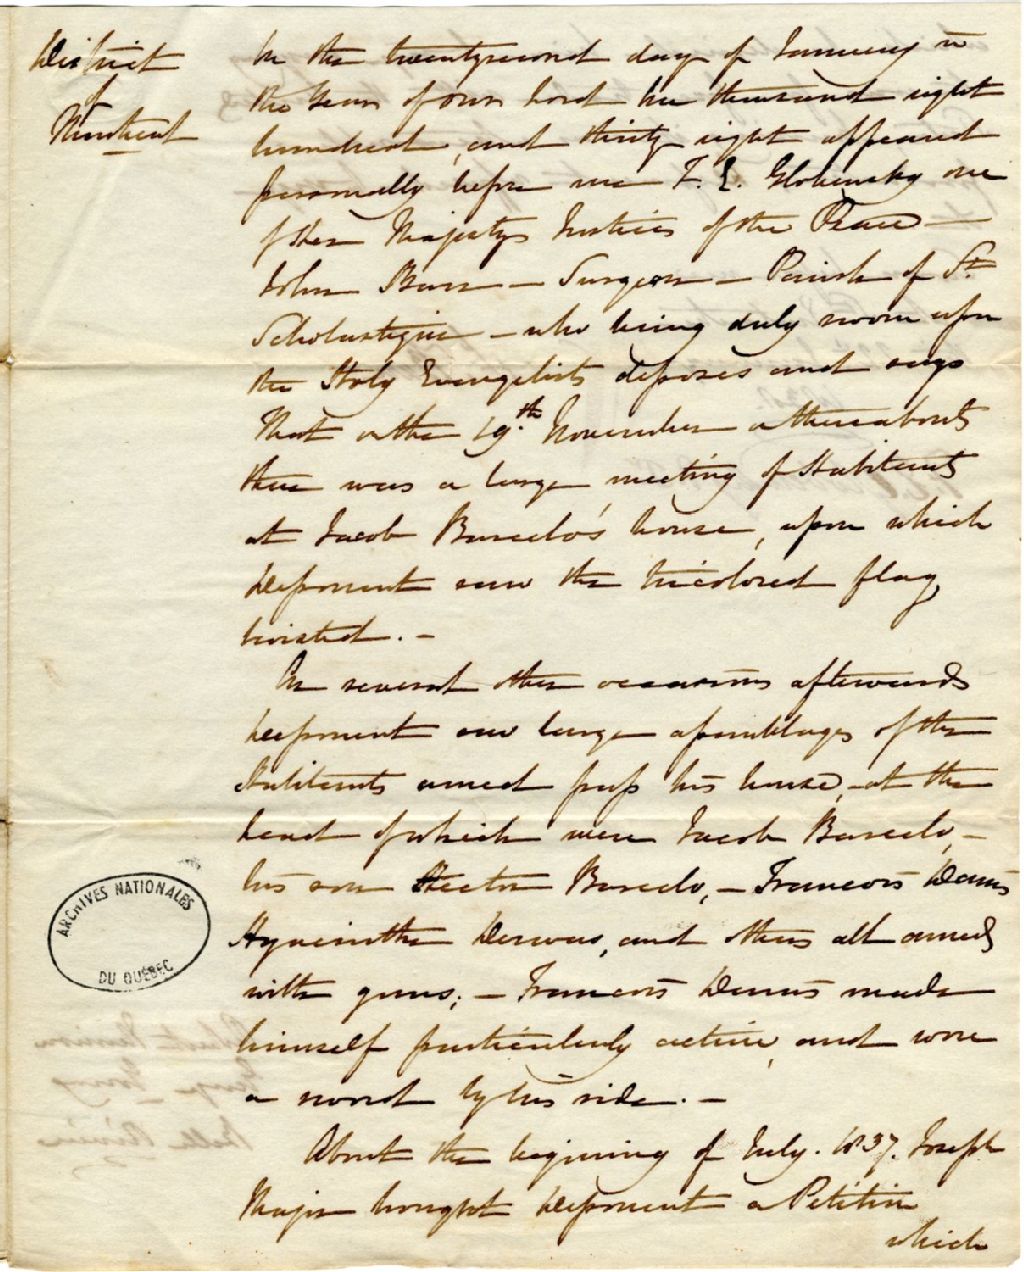 District
of
Montreal
On the twentysecond day of January in
the Year of our Lord One thousand eight
hundred, and thirty eight appeared
personally before me F. E. Globensky one
of Her Majestys Justices of the Peace —
John Barr — Surgeon — Parish of St.
Scholastique — who being duly sworn upon
the Holy Evangelists deposes and says
That on the 19th November or thereabouts
there was a large meeting of Habitants
at Jacob Barcelo's house, upon which
Deponent saw the tricolored flag
hoisted. —
On several other occasions afterwards
Deponent saw large assemblages of the
Habitants armed pass his house, at the
head of which were Jacob Barcelo, —
his son Hector Barcelo, — Francois Danis
Hyacinthe and others all armed
with guns; — Francois Danis made
himself particularly active, and wore
a sword by his side. —
About the begining of July. 1837. Joseph
Major brought Deponent a Petition
which
ARCHIVES NATIONALES
DU QUÉBEC